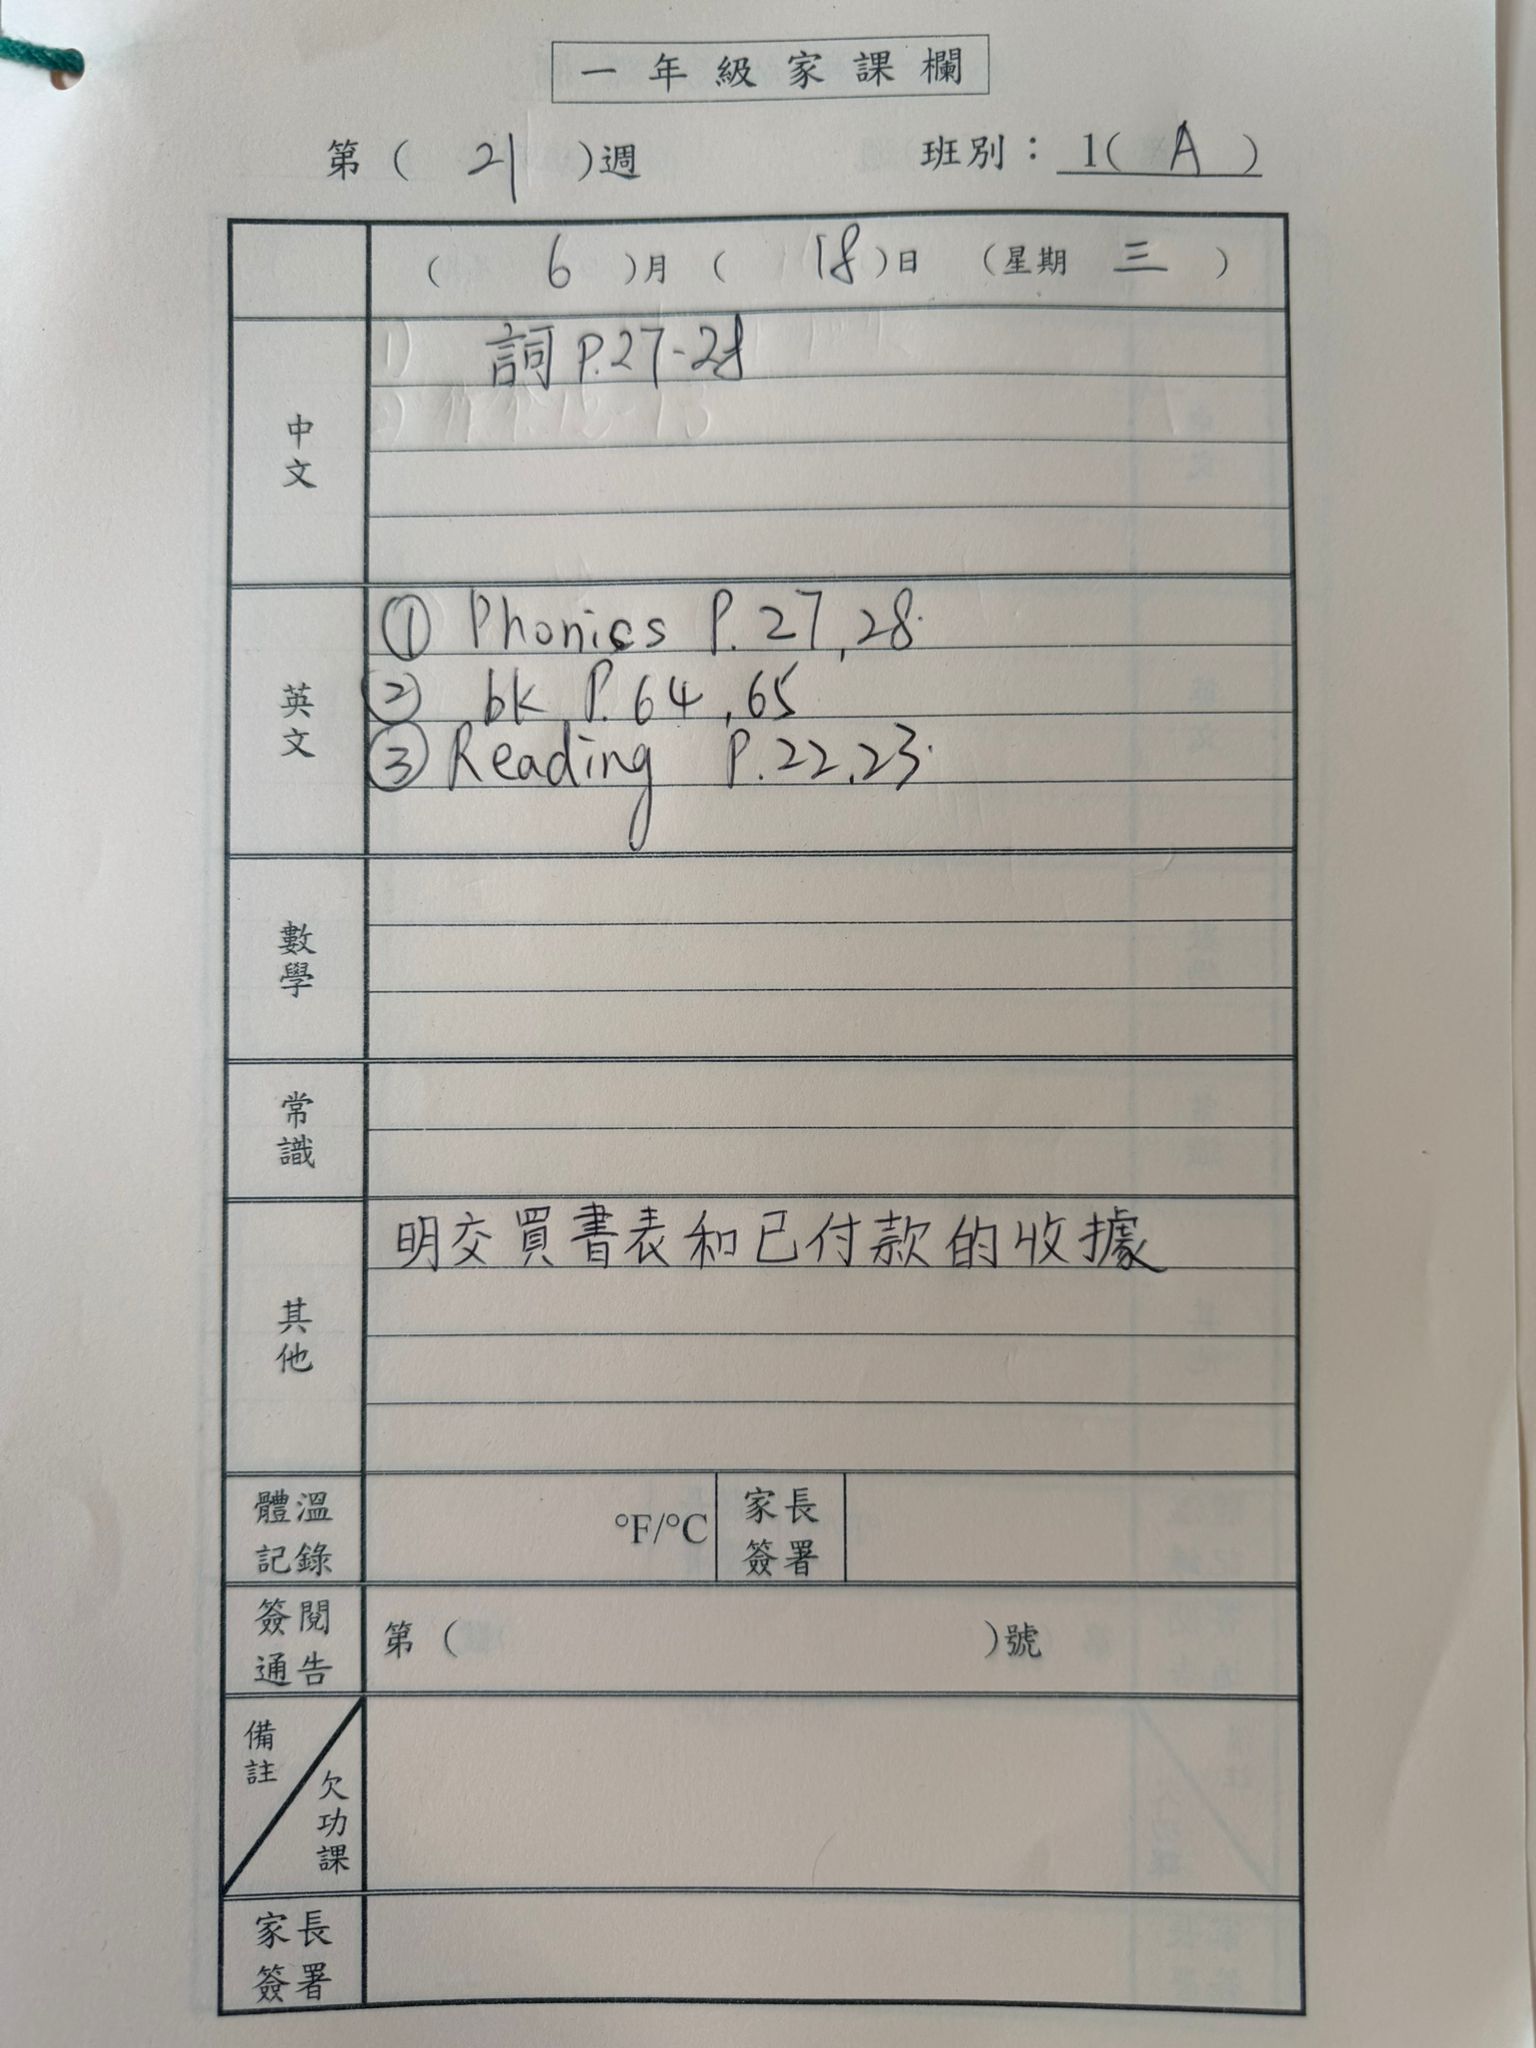 一年級家課欄
第（ 21 ）週 班別：1( A )
（ 6 ）月（ 18 ）日 （星期 三 ）
中文
詞 P.27-28
英文
① Phonics P.27,28.
② bk P.64,65
③ Reading P.22,23.
數學
常識
其他
明交買書表和已付款的收據
體溫記錄 °F/°C 家長簽署
簽閱通告 第（ ）號
備註 欠功課
家長簽署